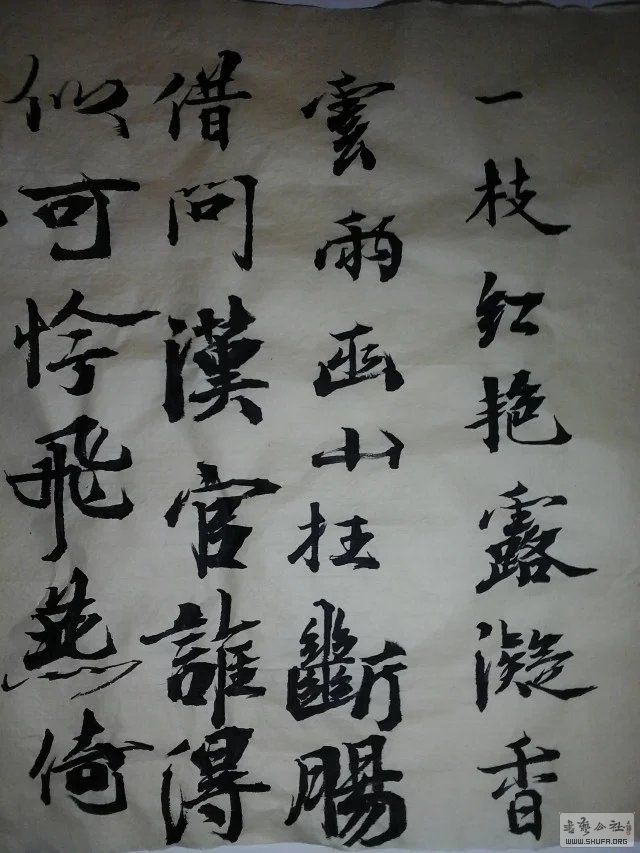 一枝红艳露凝香
雲雨巫山枉斷腸
借问漢官誰得
似可怜飛燕倚
书艺公社
WWW.SHUFA.ORG